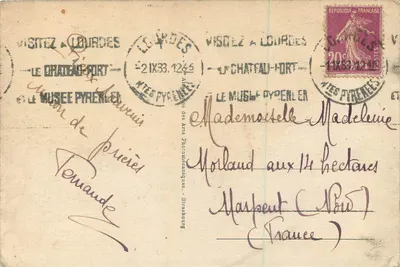 VISITEZ LOURDES
LE CHATEAU-FORT
ET LE MUSÉE PYRÉNÉEN
LOURDES
-2 IX 33. 12 45
HTES PYRÉNÉES
VISITEZ LOURDES
LE CHATEAU-FORT
ET LE MUSÉE PYRÉNÉEN
REPUBLIQUE FRANÇAISE
20c
LOURDES
HTES PYRÉNÉES
souvenir
union de prières
Fernande
des Arts Photomécaniques - Strasbourg
Mademoiselle Madeleine
Morland aux 14 hectares
Marpent (Nord)
(France)